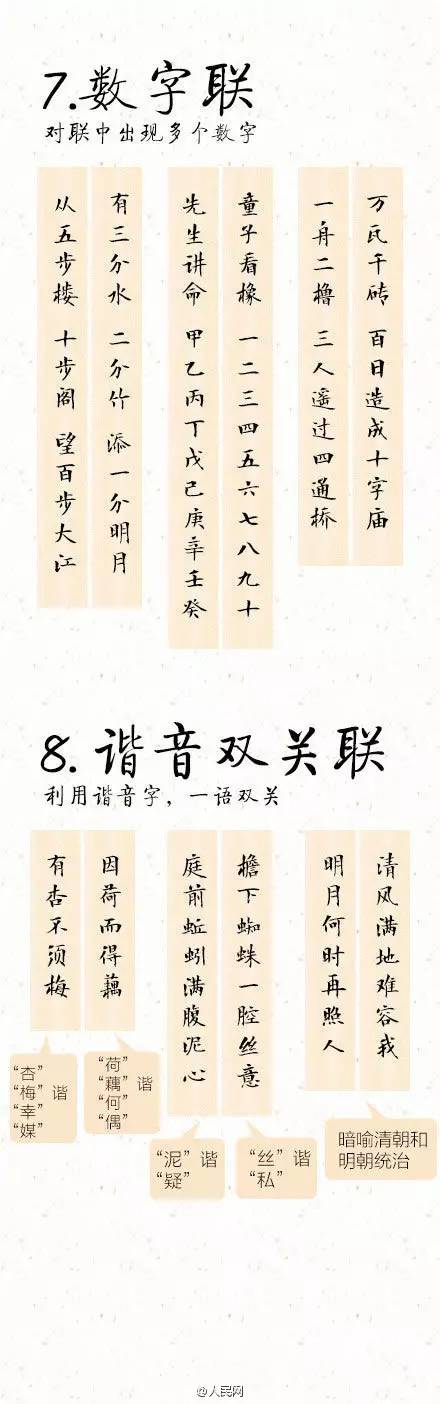 7.数字联
对联中出现多个数字
有三分水 二分竹 添一分明月
从五步楼 十步阁 望百步大江
童子看橡 一二三四五六七八九十
先生讲命 甲乙丙丁戊己庚辛壬癸
万瓦千砖 百日造成十字庙
一舟二橹 三人遥过四通桥
8.谐音双关联
利用谐音字，一语双关
因荷而得藕
有杏不须梅
檐下蜘蛛一腔丝意
庭前蚯蚓满腹泥心
清风满地难容我
明月何时再照人
“荷”
“藕”谐
“何”
“偶”
“杏”
“梅”谐
“幸”
“媒”
“丝”谐
“私”
“泥”谐
“疑”
暗喻清朝和
明朝统治
@人民网